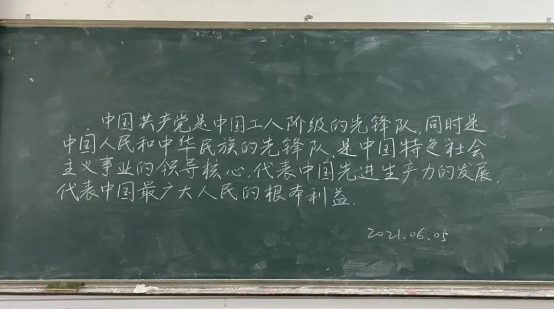 中国共产党是中国工人阶级的先锋队,同时是
中国人民和中华民族的先锋队,是中国特色社会
主义事业的领导核心,代表中国先进生产力的发展,
代表中国最广大人民的根本利益.
2021.06.05